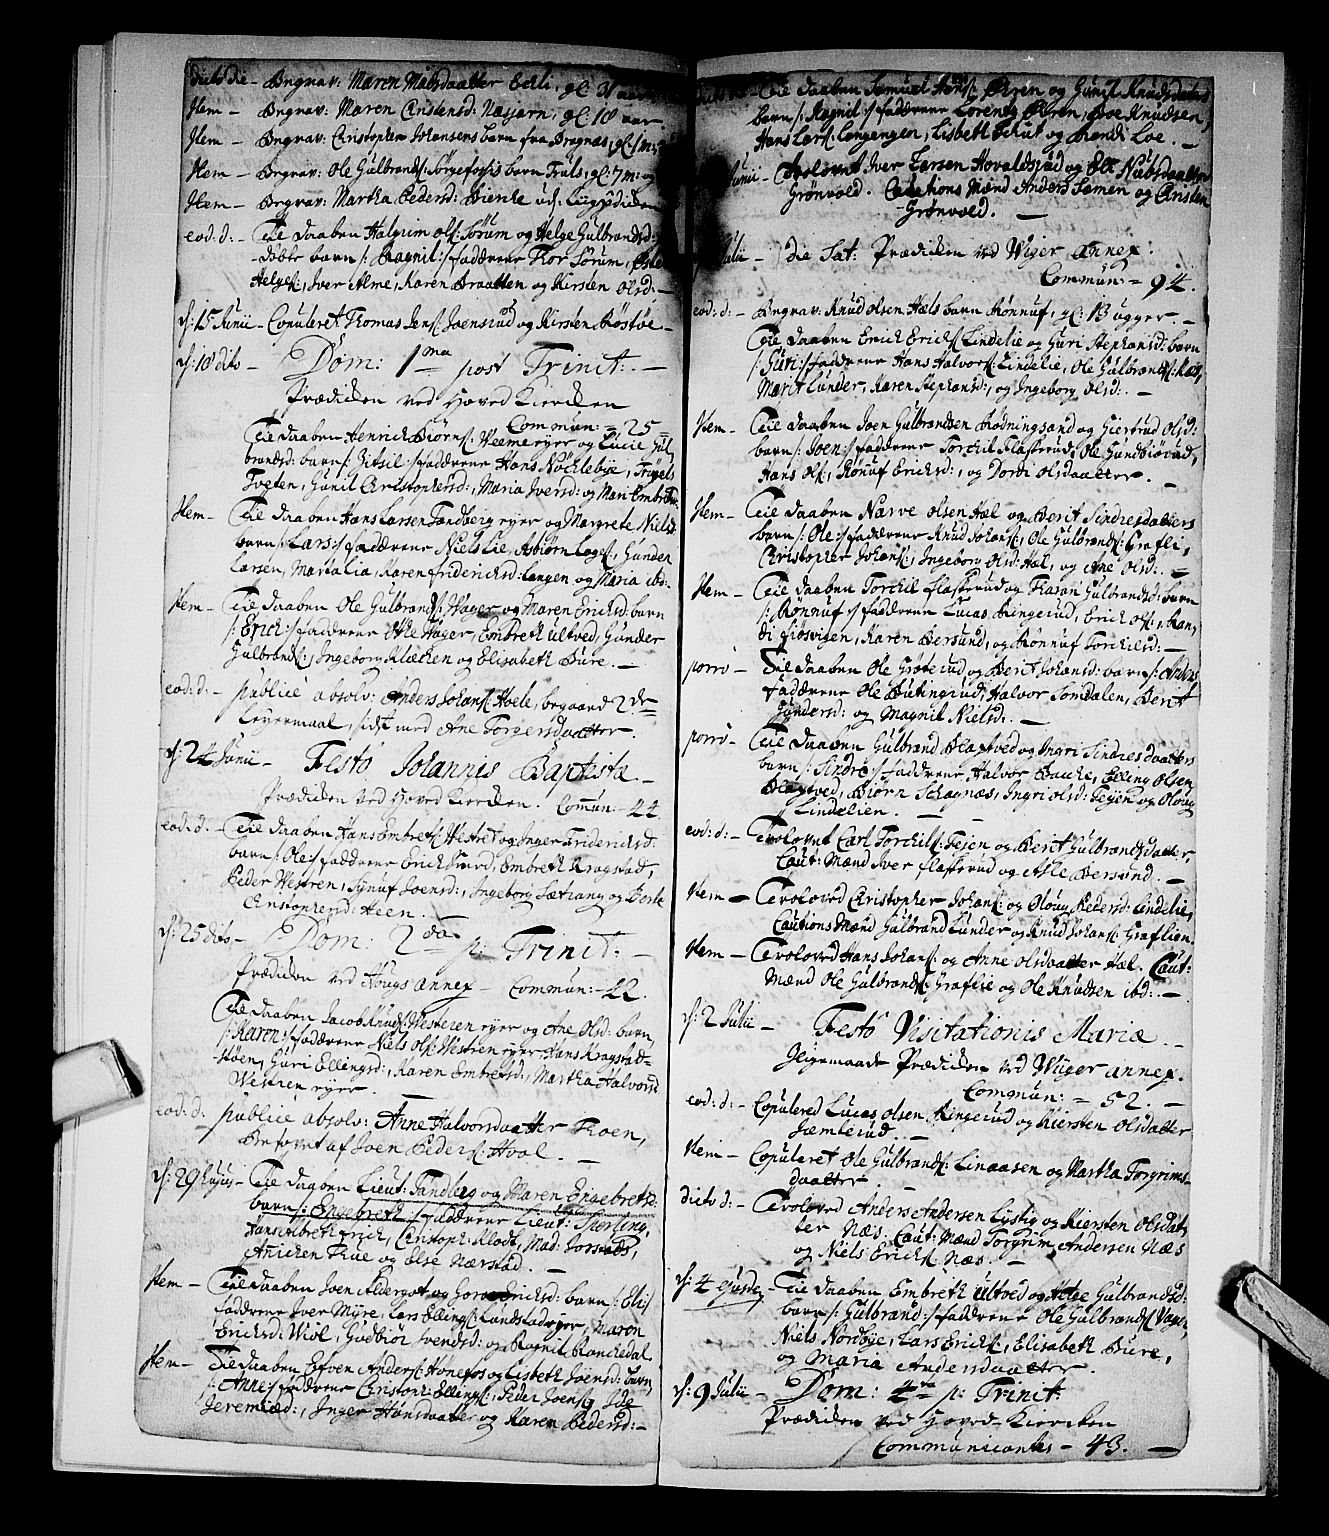 dicto die - Begrav: Maren Madsdaatter Eckli, gl: 31 aar
Item - Begrav: Maren Christensd: Næsjarn, gl: 18 aar.
Item - Begrav: Christopher Johansens barn fra Bragnæs, gl: 1 m:
Item - Begrav: Ole Gulbrands: Sørgefoss barn Truls, gl: 7 m: og
Item - Begrav: Martha Peders: Bienke uds.
eod: d: - Christ: daaben Halgrim Ols: Sørum og Helge Gulbrandsd:
døbte barn /: Bragnil :/ faddrene Thor Sørum,
Helges:, Iver Alme, Karen Braatten og Kirsten Olsd: -
d: 15 Junii - Copuleret Thomas Jens: Joensrud og Kirsten Røstøe -
d: 18 dito - Dom: 1ma post Trinit: -
Prædiken ved Hoved Kiercken
Commun: = 25 =
daaben Henrich Biørns: Weme eyer og Lucie Gul
brandsd: barn /: Zitsil :/ faddrene Hans Nøcklebye, Truels
Tveten, Gunil Christophersd:, Maria Iversd: og Mari Embretsd:
Item - daaben Hans Larsen Tandberg eyer og Margrete Nielsd:
barn /: Lars :/ faddrene Niels Lie, Asbiørn Loges:, Gunder
Larsen, Martalia, Karen Friderichsd: Langen og Maria ibd:
Item - daaben Ole Gulbrands: Wager og Maren Ericksd: barn
/: Erich :/ faddrene Otte Hager, Embreth Ultved, Gunder
Gulbrands:, Ingeborg Klæcken og Elisabeth Bure. -
eod: d: - publicè absolv: Anders Johans: Hoele, begaaed 2 de
Leyermaal, sidst med Ane Torgersdaatter.
d: 24 Junii - Festô Johannis Baptistæ -
Prædiken ved Hoved Kiercken. Comun: - 44.
eod: d. - daaben Hans Embrets: Westret og Inger Friderichsd:
barn /: Ole :/ faddrene Erich Hværd, Embreth Kragstad,
Peder Westren, Synuf Joensd:, Ingeborg Sætrang og Berte
Christophersd: Heen. -
d: 25 dito - Dom: 2 da p: Trinit: -
Prædiken ved Hougs annex - Commun: - 22.
daaben Jacob Knuds: Westeren eyer og Ane Olsd: barn,
/: Karen :/ faddrene Niels Ols: Westren eyer Hans Kragstad-
støen, Guri Ellingsd:, Karen Embretsd:, Martha Halvorsd
Westren eyer. -
eod: d. publicè absolv: Anne Halvorsdaatter Moen,
Besovet af Joen Peders: Hval. -
d: 29 hujus - daaben Lieut: Tandberg og Maren Engebretsd:
barn /: Engebreth :/ faddrene Lieut: Sperling,
Hans Albreth Frich, Christoph: Klodt, Mad: Jorstads,
Anichen Thue og Else Nærstad. -
Item - daaben Joen Aldergot og Gorve Erichsd: barn /: Eli :/
faddrene Iver Myre, Lars Ellings: Lundstad eyer, Maren
Ericksd: Wiol, Gudbior Svendsd: og Ragnil Ranchedal
Item - daaben Esven Anders: Hønefos og Lisbeth Joensd: barn,
/: Anne :/ faddrene Christoph: Ellings:, Peder Joens:, Ide
Jeremiæd:, Inger Hansdaatter og Karen Pedersd: -
dicto die - daaben Samuel Hans: Øren og Gunil Knudsdaatters
barn /: Ragnil :/ faddrene Lorentz Øren, Boe Knudsen,
Hans Lars: Langengen, Lisbeth Schut og Randi Loe. -
Junii - Trolovet Iver Larsen Hovaldsstad og Ele Nubsdaatter
Grønvold. Cautions Mænd Anders Semen og Christen
Grønvold. -
Julii - die Sat: Prædiken ved Wiger annex.
Commun: = 94.
eod: d: - Begrav: Knud Olsen Hæls barn Rønnuf, gl: 13 uger. -
daaben Erich Erichs: Lindelie og Guri Stephansd: barn
/: Guri :/ faddrene Hans Halvors: Lindelie, Ole Gulbrands: Næs,
Marit Lunder, Karen Stephansd:, og Ingeborg Olsd: -
Item - daaben Joen Gulbrandsen Rødningsand og Giertrud Olsd:
barn /: Joen :/ faddrene Torchil Flaskerud, Ole Gundbiørud,
Hans Ols:, Rønuf Ericksd:, og Dordi Olsdaatter. -
Item - daaben Narve Olsen Hæl og Berit Sindresdatters
barn /: Ole :/ faddrene Knud Johans:, Ole Gulbrands: Grafli,
Christopher Johans:, Ingeborg Olsd: Hæl, og Ane Olsd: -
Item - daaben Torchil Flaskerud og Gulbrandsd: barn
/: Rønnuf :/ faddrene Lucas Ringerud, Erich Ols:, Ran-
di Giøsvigen, Karen Bersund, og Rønnuf Torchilsd: -
porrò - daaben Ole Grøterud og Berit Johansd: barn /: Anders :/
faddrene Ole Butingrud, Halvor Somdalen, Berit
Gundersd: og Magnil Nielsd: -
porrò - daaben Gulbrand Blaktved og Ingri Sindresdaatters
barn /: Sindre :/ faddrene Halvor Bache, Elling Olsen
Blagtved, Biørn Schagnæs, Ingri Olsd: Tejen og Oloug
Lindelien. -
eod: d: - Trolovet Carl Torchils: Tejen og Berit Gulbrandsdaatter,
Caut: Mænd Iver Flaskerud og Asle Bersund. -
Item - Trolovet Christopher Johans: og Oloug Pedersd: Lindelie,
Cautions Mænd Gulbrand Lunder og Knud Johans: Graflien.
Item - Trolovet Hans Johans: og Anne Olsdaatter Hæl. Caut:
Mænd Ole Gulbrands: Graflie og Ole Knudsen ibd: -
d: 2 Julii - Festô Visitationis Mariæ -
Prædiken ved Wiger annex.
Commun: = 52. -
eod: d: - Copuleret Lucas Olsen Ringerud og Kiersten Olsdatter
Semlerud. -
Item - Copuleret Ole Gulbrands: Linaasen og Martha Torgrims-
daatter. -
dicto d: - Trolovet Anders Andersen Lystig og Kiersten Olsdat,
ter Næs, Caut: Mænd Torgrim Andersen Næs
og Niels Erichs: Næs. -
d: 4 ejusdem - daaben Embreth Ultved og Helge Gulbrandsd:
barn /: Gulbrand :/ faddrene Ole Gulbrands: Vager,
Niels Nordbye, Lars Erichs:, Elisabeth Bure,
og Maria Andersdaatter.
d: 9 Julii - Dom: 4ta p: Trinit:
Prædiken ved Hoved Kiercken
Communicantes - 43. -